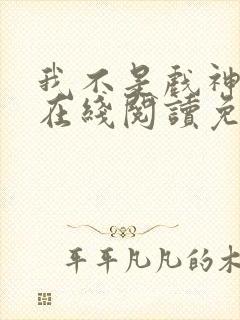 我不是戏神
在綫閱讀免
平平凡凡的木